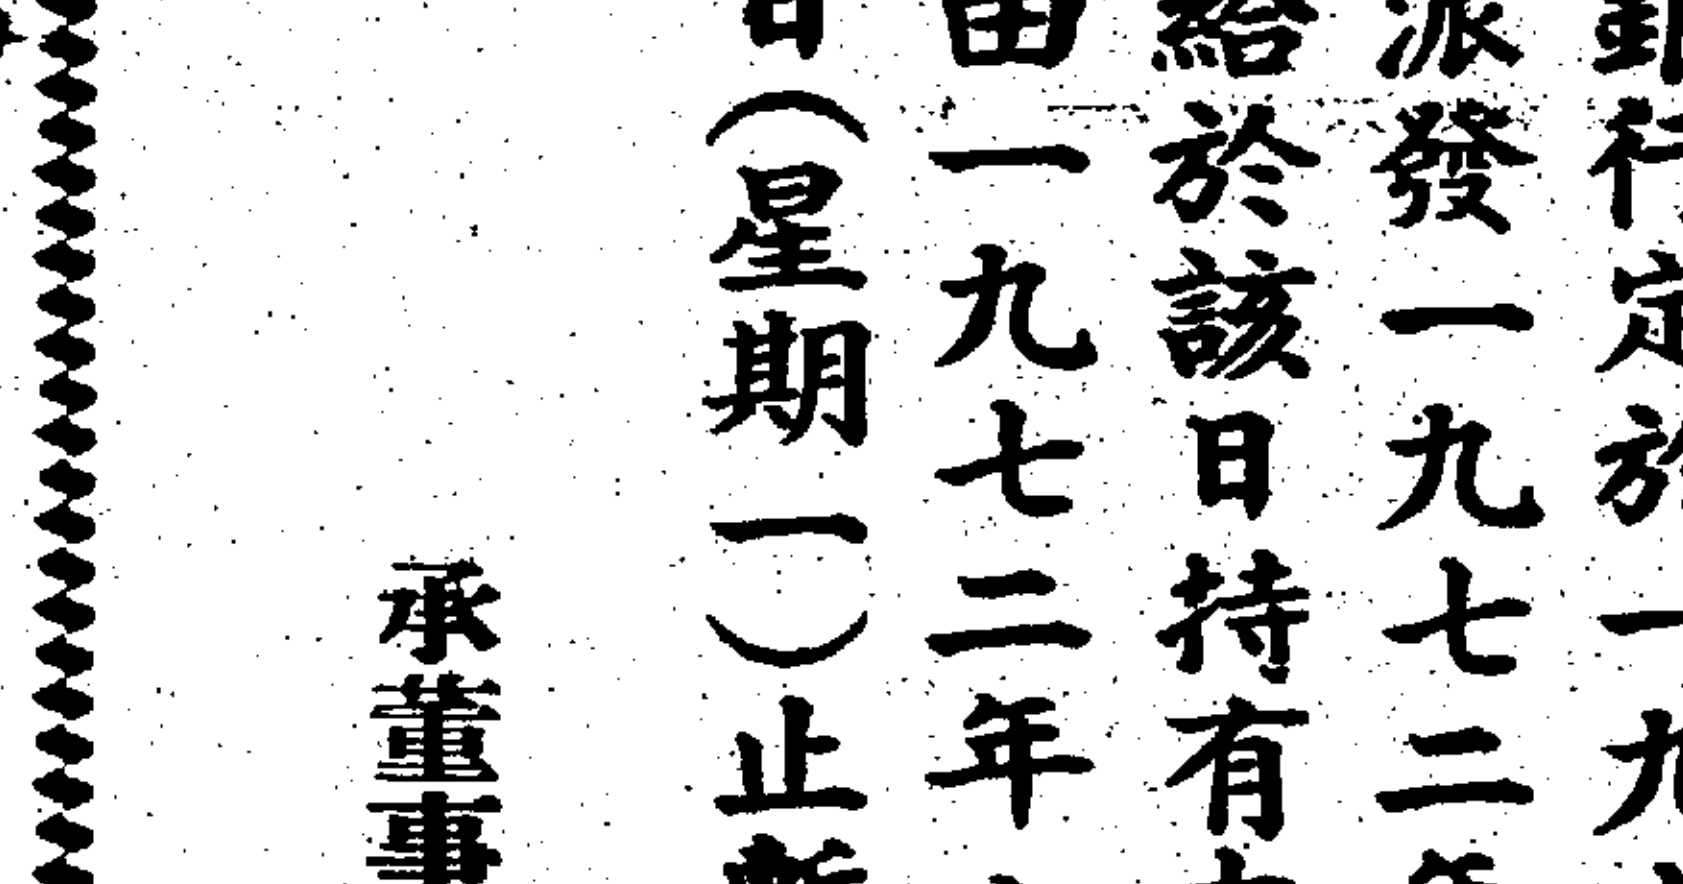 銀行定於一九
派發一九七二年
給於該日持有
由一九七二年
日（星期一）止暫
承董事